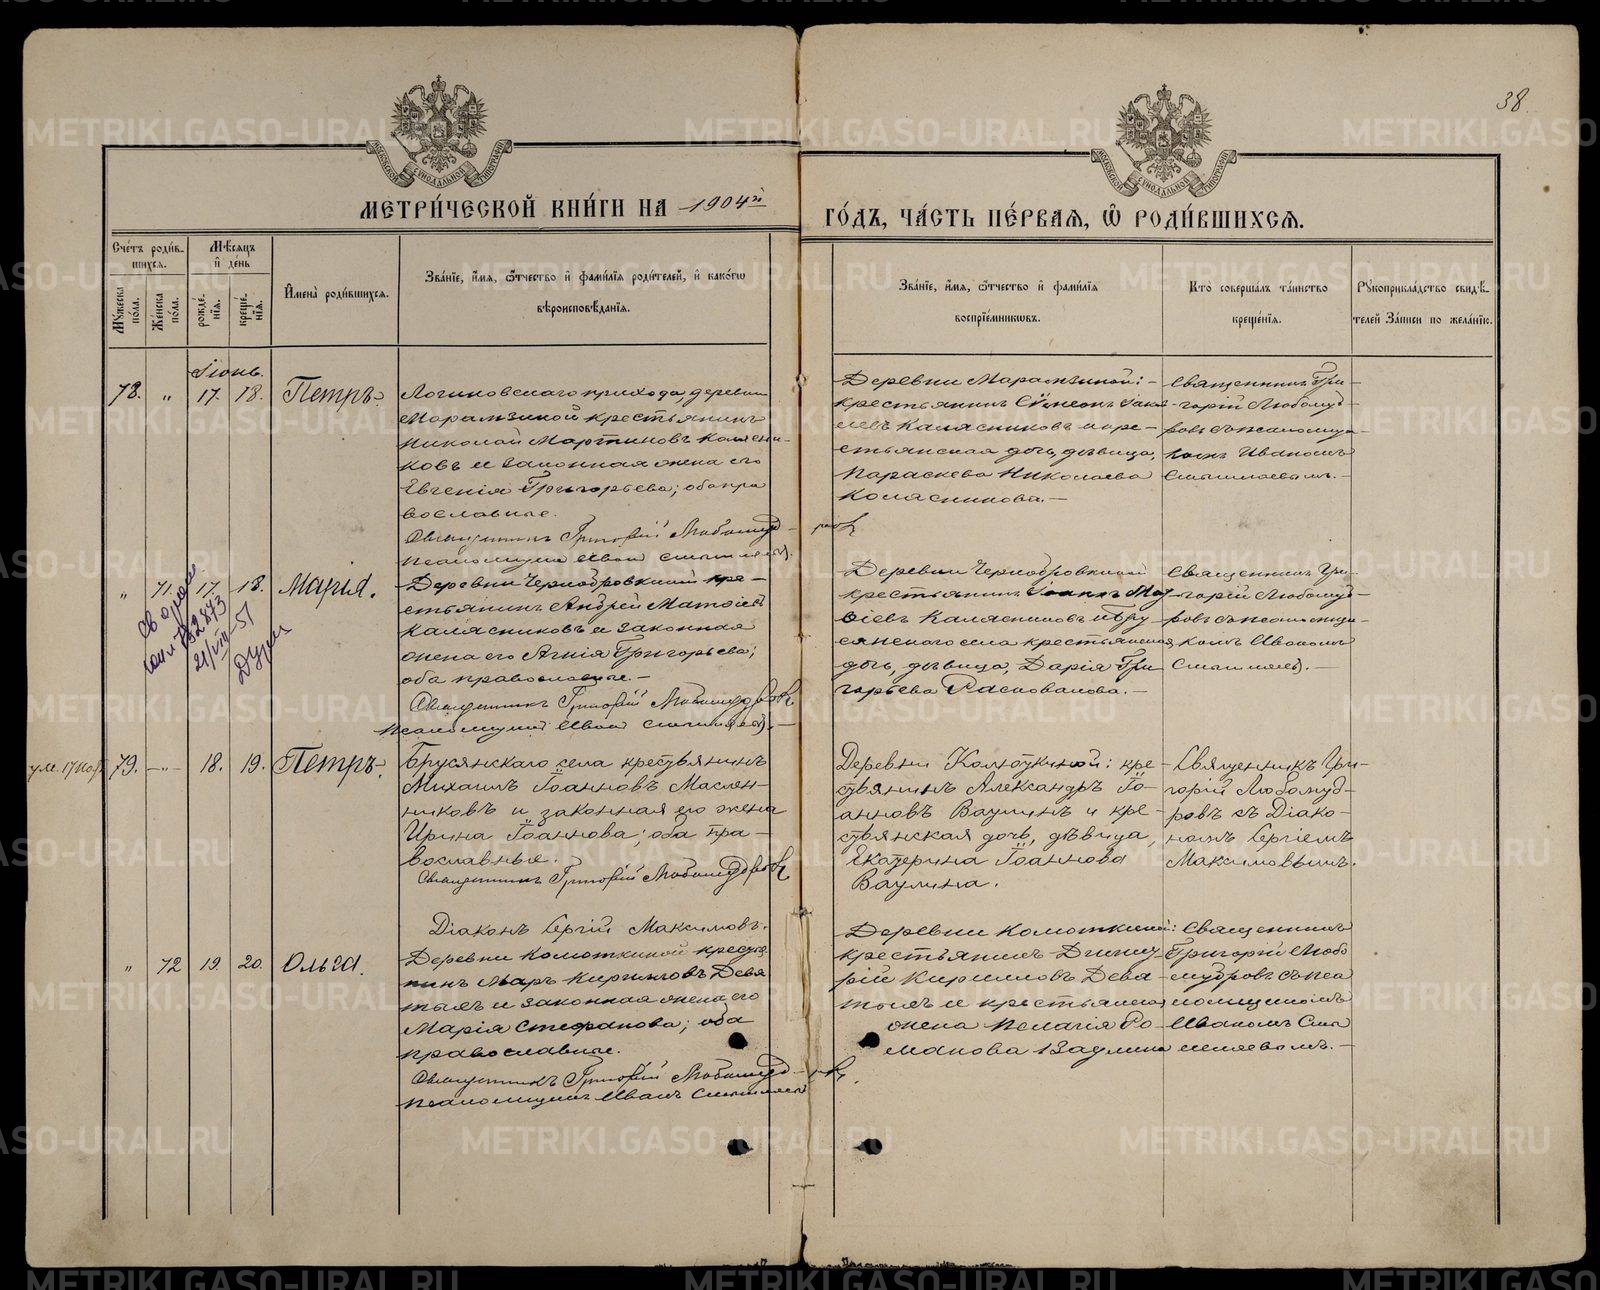 38.
МЕТРИ́ЧЕСКОЙ КНИ́ГИ НА 1904й
ГО́ДЪ, ЧА́СТЬ ПЕ́РВАѦ, Ѡ҆ РОДИ́ВШИХСѦ.
Сче́тъ роди́в-
шихсѧ.
Мѣ́сѧцъ
и҆ де́нь
Мꙋжеска по́ла.
Же́нска по́ла.
рожде́-
нїѧ.
креще́-
нїѧ.
И҆мена̀ роди́вшихсѧ.
Зва́нїе, и҆́мѧ, ѻ҆́тчество и҆ фами́лїѧ роди́телей, и҆ како́гѡ
вѣроисповѣ́данїѧ.
Зва́нїе, и҆́мѧ, ѻ҆́тчество и҆ фами́лїѧ
воспрїе́мникѡвъ.
Кто̀ соверша́лъ та́инство
креще́нїѧ.
Рꙋкоприкла́дство свидѣ́-
телей за́писи по жела́нїю.
Іюнь.
78. " 17. 18. Петръ.
Логиновскаго прихода, деревни
Марамзиной крестьянинъ
Николай Мартиновъ Колясни-
ковъ и законная жена его
Евгенія Григорьева; оба пра
вославные.
Священникъ Григорій Любомуд-
ровъ
Псаломщикъ Иванъ
Деревни Марамзиной: -
крестьянинъ Симеонъ Іаков-
левъ Калясниковъ и кре-
стьянская дочь, дѣвица,
Параскева Николаева
Колясникова. -
Священникъ Гри-
горій Любомуд-
ровъ съ псаломщи-
комъ Иваномъ
" 71. 17. 18. Марія.
Деревни Чернобровкиной кре-
стьянинъ Андрей Матѳіевъ
Калясниковъ и законная
жена его Агнія Григорьева;
оба православные. -
Священникъ Григорій Любомудровъ
Псаломщикъ Иванъ
Деревни Чернобровкиной
крестьянинъ Іоаннъ Мат-
ѳіевъ Калясниковъ и Бру
сянскаго села крестьянская
дочь, дѣвица, Дарія Гри
горьева Распопова. -
Священникъ Гри-
горій Любомуд-
ровъ съ псаломщи-
комъ Иваномъ
21/VII-51
ум. 17 нояб. 79. -"- 18. 19. Петръ.
Брусянскаго села крестьянинъ
Михаилъ Іоанновъ Маслен-
никовъ и законная его жена
Ирина Іоаннова; оба пра-
вославные.
Священникъ Григорій Любомудровъ
Діаконъ Сергій Максимовъ.
Деревни Колюткиной: кре-
стьянинъ Александръ Іо-
анновъ Ваулинъ и кре-
стьянская дочь, дѣвица,
Екатерина Іоаннова
Ваулина.
Священникъ Гри-
горій Любомуд-
ровъ съ Діако-
номъ Сергіемъ
Максимовымъ.
" 72 19. 20. Ольга.
Деревни Колюткиной крестья
нинъ Маръ Кирилловъ Девя
тыхъ и законная жена его
Марія Стефанова; оба
православные.
Священникъ Григорій Любомуд-
ровъ
Псаломщикъ Иванъ
Деревни Колюткиной:
крестьянинъ Дими
рій Кирилловъ Девя-
тыхъ и крестьянина
жена Пелагія Ро-
манова Ваулина
Священникъ
Григорій Любо
мудровъ съ пса
ломщикомъ
Иваномъ